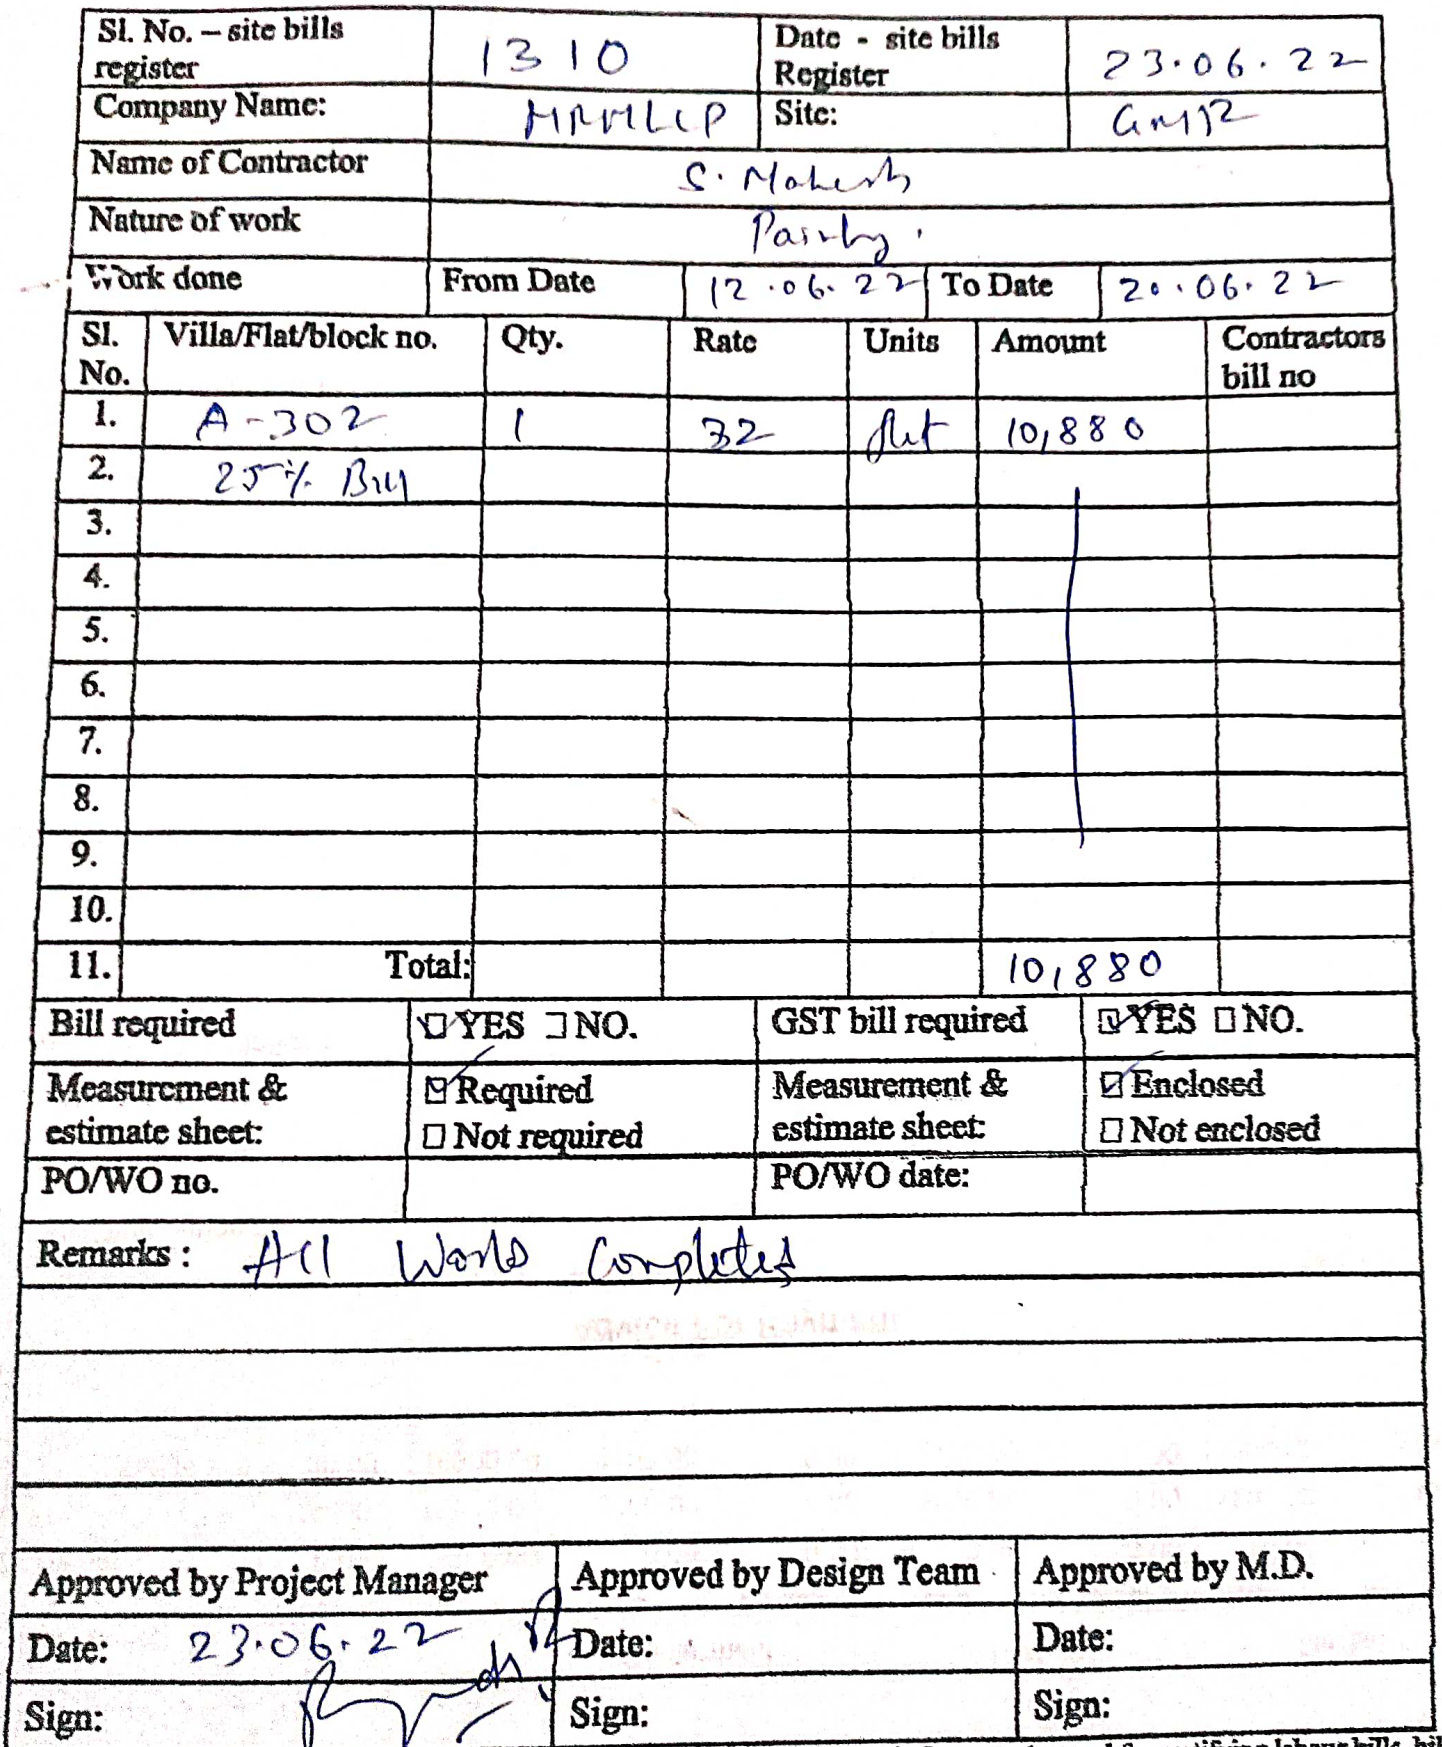 Sl. No. – site bills register 1310 Date - site bills Register 23.06.22
Company Name: MRMLLP Site: GMR
Name of Contractor S. Mahesh
Nature of work Painting.
Work done From Date 12.06.22 To Date 20.06.22
Sl. No. Villa/Flat/block no. Qty. Rate Units Amount Contractors bill no
1. A-302 1 32 flat 10,880
2. 25% Bill
3.
4.
5.
6.
7.
8.
9.
10.
11. Total: 10,880
Bill required ☑ YES ☐ NO. GST bill required ☑ YES ☐ NO.
Measurement & estimate sheet: ☑ Required ☐ Not required Measurement & estimate sheet: ☑ Enclosed ☐ Not enclosed
PO/WO no. PO/WO date:
Remarks : All Works Completed
Approved by Project Manager Approved by Design Team Approved by M.D.
Date: 23.06.22 Date: Date:
Sign: Sign: Sign: